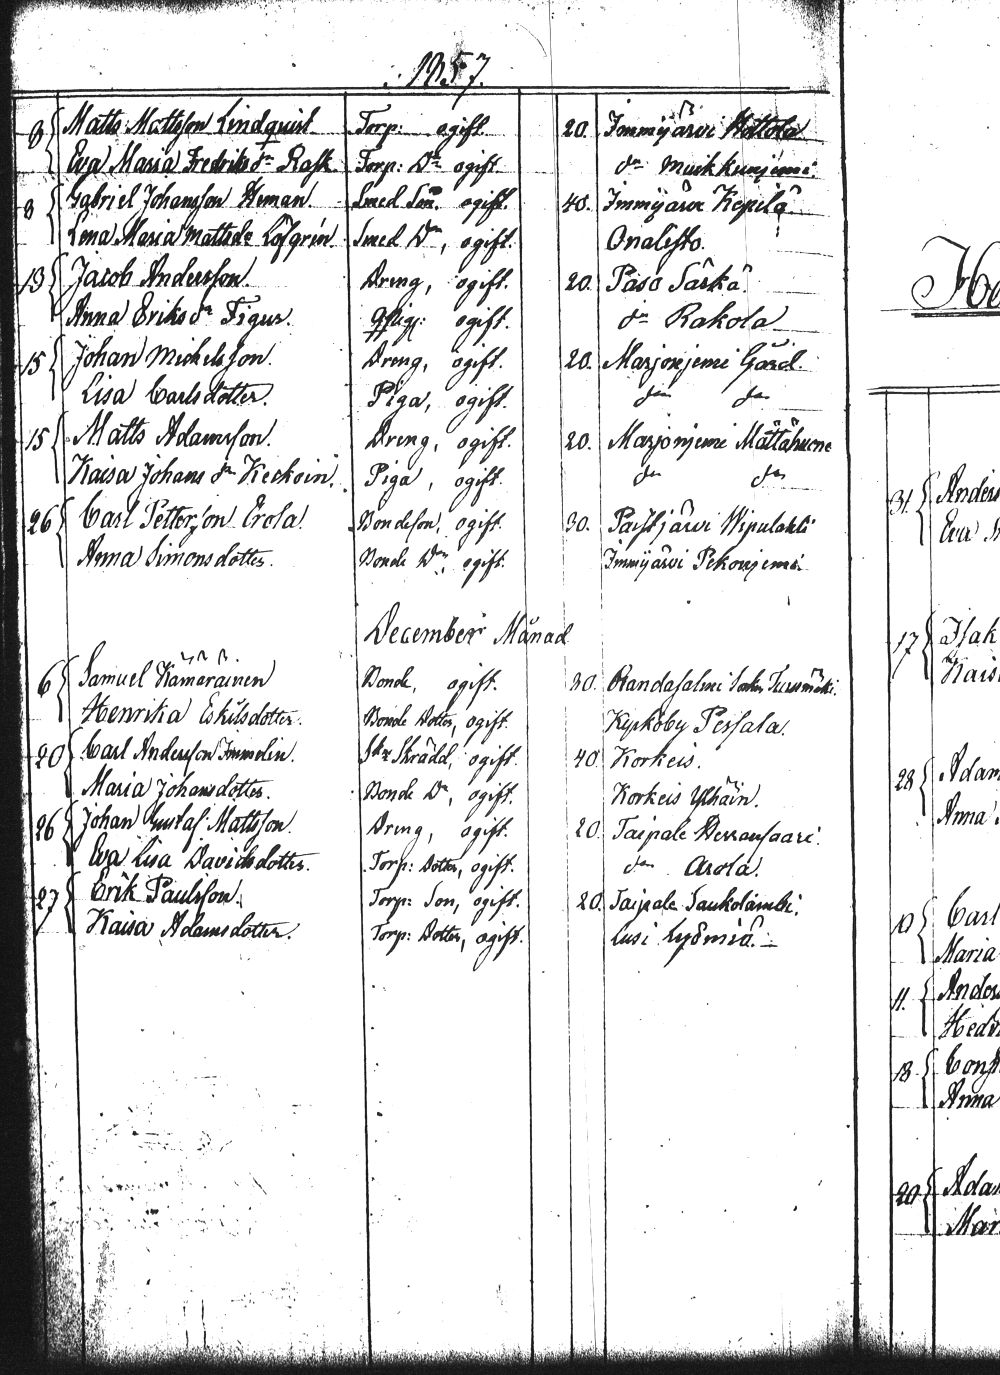 1857.
8 Matts Mattsson Lindquist Torp: ogift. 20. Immijärvi Hottola
Eva Maria Fredriks dr Rask Torp: Dr ogift. do Muikkunjemi
8 Gabriel Johansson Heman. Smed Son. ogift. 40. Immijärvi Kepilä
Lena Maria Matts dr Löfgrén Smed Dr, ogift. Onalisto.
13 Jacob Andersson. Dreng, ogift. 20. Paso Särkä.
Anna Eriks dr Figur. ogift. do Rakola
15 Johan Mickelsson. Dreng, ogift. 20. Marjonjemi Gård.
Lisa Carlsdotter. Piga, ogift. do do
15 Matts Adamsson. Dreng, ogift. 20. Marjonjemi
Kaisa Johans dr Keckoin. Piga, ogift. do do
26 Carl Petterson Erola. Bondeson, ogift. 30. Paistjärvi Wipulahti
Anna Simonsdotter. Bonde Dr, ogift. Immijärvi Pekonjemi.
December Månad
6 Samuel Kämäräinen Bonde, ogift. 30. Randasalmi
Henrika Eskilsdotter. Bonde Dotter, ogift. Kyrkoby Persala.
20 Carl Andersson Immelin. Skrädd, ogift. 40 Korkeis.
Maria Johansdotter. Bonde Dr, ogift. Korkeis Ylhäin.
26 Johan Gustaf Mattsson. Dreng, ogift. 20. Taipale
Eva Lisa Davidsdotter. Torp: Dotter, ogift. do Arola.
27 Erik Paulsson. Torp: Son, ogift. 20. Taipale Saukolambi.
Kaisa Adamsdotter. Torp: Dotter, ogift. Lusi Lyömiö.
31.
Eva
17 Isak
Kaisa
28 Adam
Anna
Carl
Maria
11.
18
Anna
20